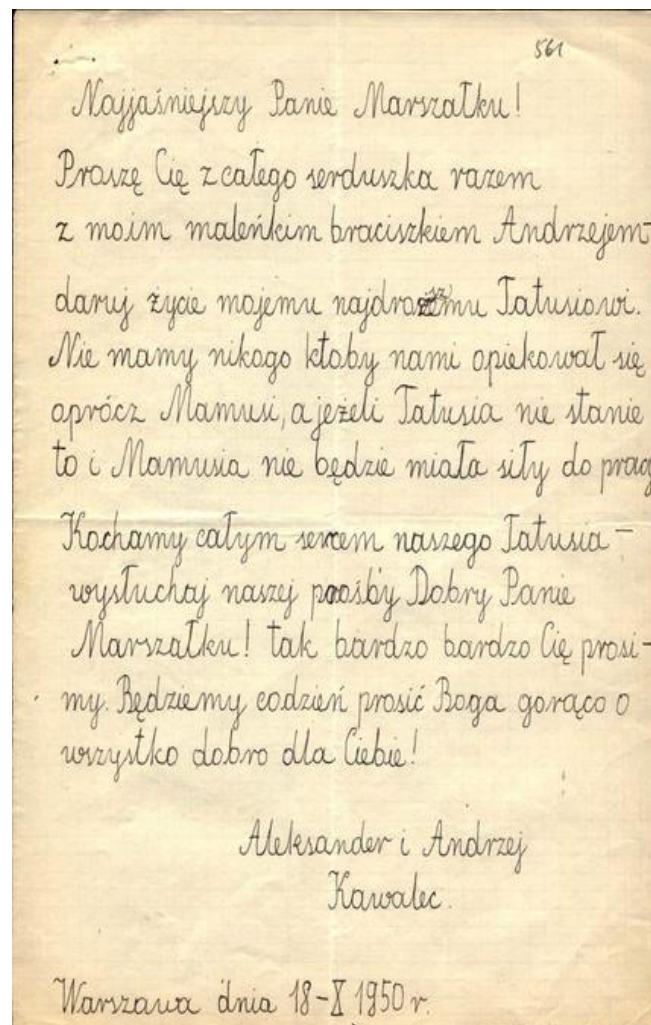 561
Najjaśniejszy Panie Marszałku!
Proszę Cię z całego serduszka razem
z moim maleńkim braciszkiem Andrzejem-
daruj życie mojemu najdroższemu Tatusiowi.
Nie mamy nikogo ktoby nami opiekował się
oprócz Mamusi, a jeżeli Tatusia nie stanie
to i Mamusia nie będzie miała siły do pracy
Kochamy całym sercem naszego Tatusia -
wysłuchaj naszej prośby Dobry Panie
Marszałku! tak bardzo bardzo Cię prosi-
my. Będziemy codzień prosić Boga gorąco o
wszystko dobro dla Ciebie!
Aleksander i Andrzej
Kawalec.
Warszawa dnia 18-X 1950 r.